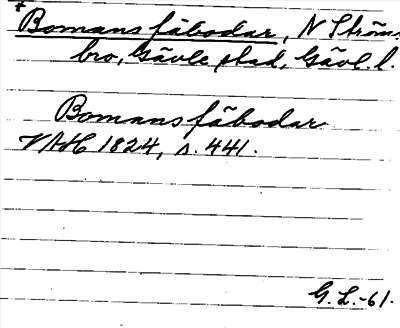 * Bomans fäbodar, N Ström-
bro, Gävle stad, Gävl. l.
Bomans fäbodar
VAH 1824, s. 441.
G. L. -61.